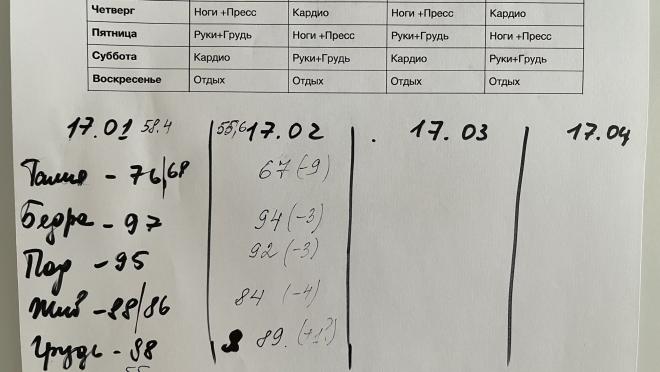 Четверг Ноги +Пресс Кардио Ноги +Пресс Кардио
Пятница Руки+Грудь Ноги +Пресс Руки+Грудь Ноги +Пресс
Суббота Кардио Руки+Грудь Кардио Руки+Грудь
Воскресенье Отдых Отдых Отдых Отдых
17.01 58.4 55,6 17.02 17.03 17.04
Талия - 76/68 67 (-9)
Бедра - 97 94 (-3)
Пор - 95 92 (-3)
Жив - 88/86 84 (-4)
Грудь - 98 89. (+1?)